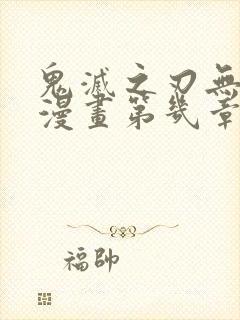 鬼滅之刃無
漫畫第幾章
福帥